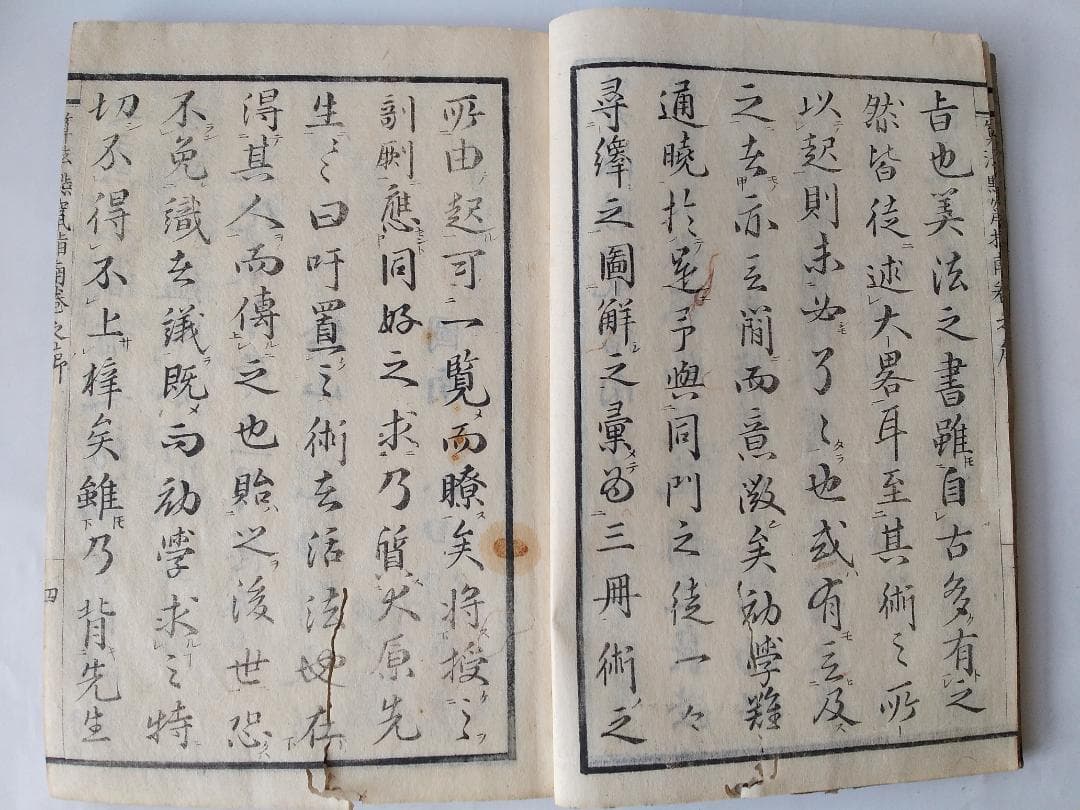 旨也筭法之書雖自古多有之
然皆徒述大畧耳至其術之所
以起則未必了〻也或有言及
之者亦言簡而意微矣幼學難
通曉於是予與同門之徒一々
尋繹之圖解之彙為三冊術之
所由起可一覽而瞭矣將授之
剞劂應同好之求乃質大原先
生〻曰吁置之術者活法也在
得其人而傳之也貽之後世恐
不免識者議既而幼學求之特
切不得不上梓矣雖乃背先生
筭法點竄指南卷之序
四